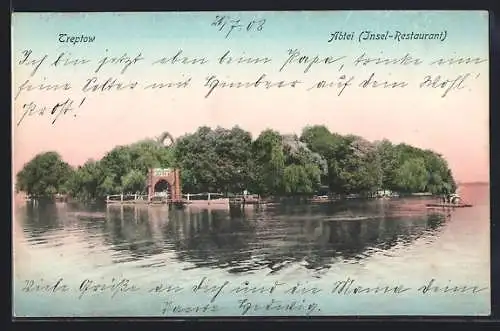 Treptow
20/7/08
Abtei (Insel-Restaurant)
Ich bin jetzt eben beim Papa, trinke eine
feine Selter mit Himbeer auf dem Wohl!
Prost!
Viele Grüße an Dich und in Mama deine
Tante Hedwig.